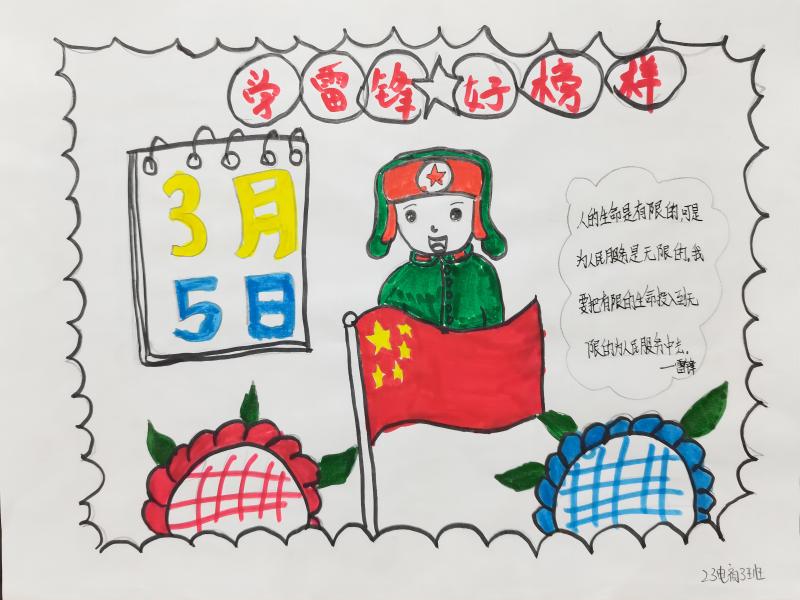 学雷锋好榜样
3月
5日
人的生命是有限的,可是
为人民服务是无限的。我
要把有限的生命投入到无
限的为人民服务中去。
——雷锋
23电商3班